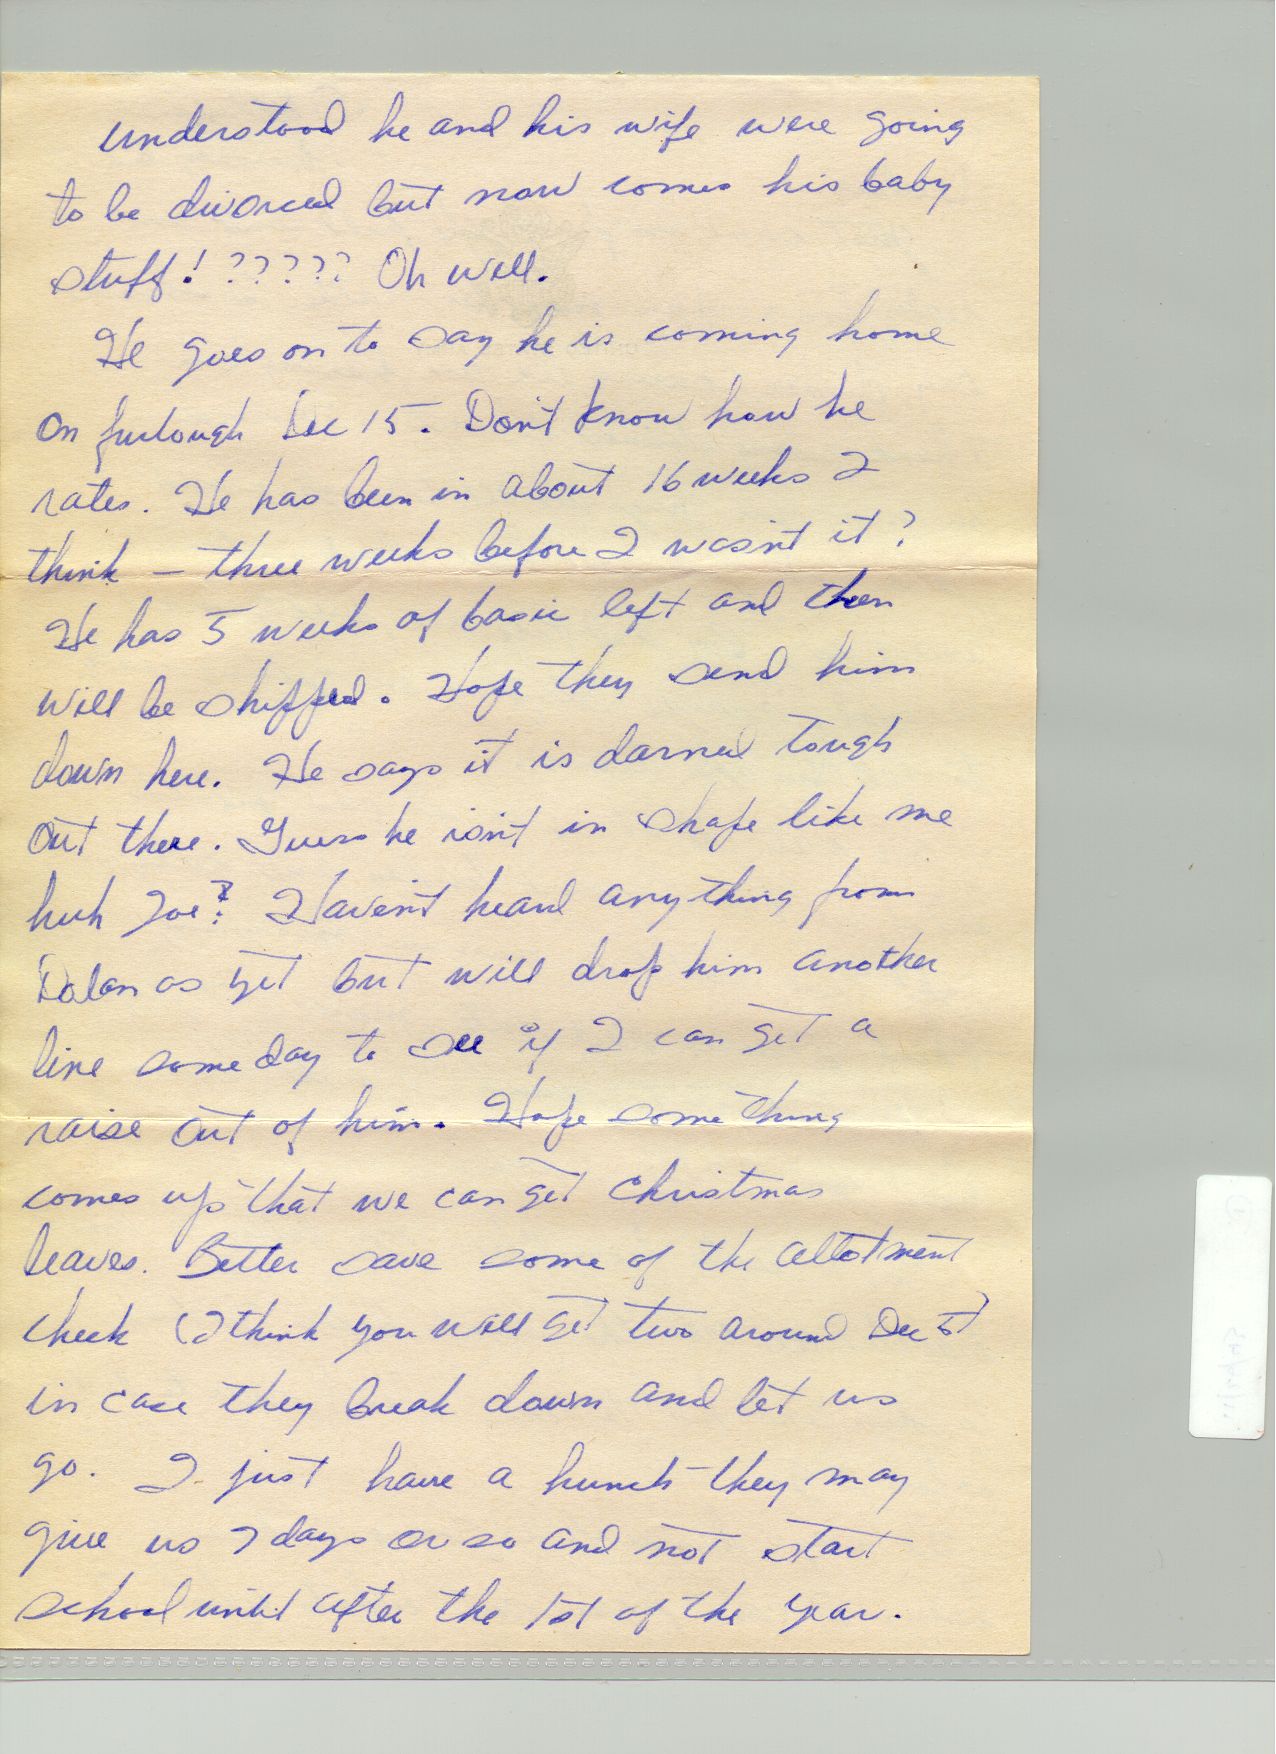 understood he and his wife were going
to be divorced but now comes his baby
stuff! ????? Oh well.
He goes on to say he is coming home
on furlough Dec 15. Don't know how he
rates. He has been in about 16 weeks I
think – three weeks before I wasn't it?
He has 5 weeks of basic left and then
will be shipped. Hope they send him
down here. He says it is darned tough
out there. Guess he isn't in shape like me
huh Joe? Haven't heard anything from
Dolan as yet but will drop him another
line some day to see if I can get a
raise out of him. Hope something
comes up that we can get Christmas
leaves. Better save some of the allotment
check (I think you will get two around Dec 1st)
in case they break down and let us
go. I just have a hunch they may
give us 7 days or so and not start
school until after the 1st of the year.